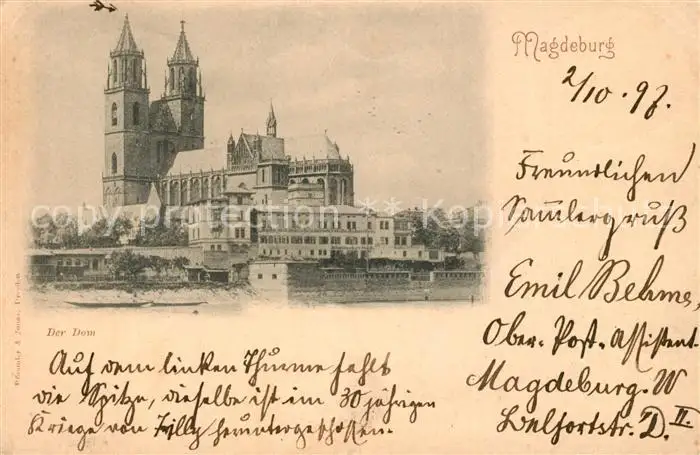 Magdeburg
2/10. 97.
Freundlichen
Sammlergruß
Emil Behme,
Ober-Post-Assistent
Magdeburg-W
Belfortstr.
II.
Der Dom
Auf dem linken Thurme fehlt
die Spitze, dieselbe ist im 30 jährigen
Kriege von Tilly heruntergeschossen.
© copyright